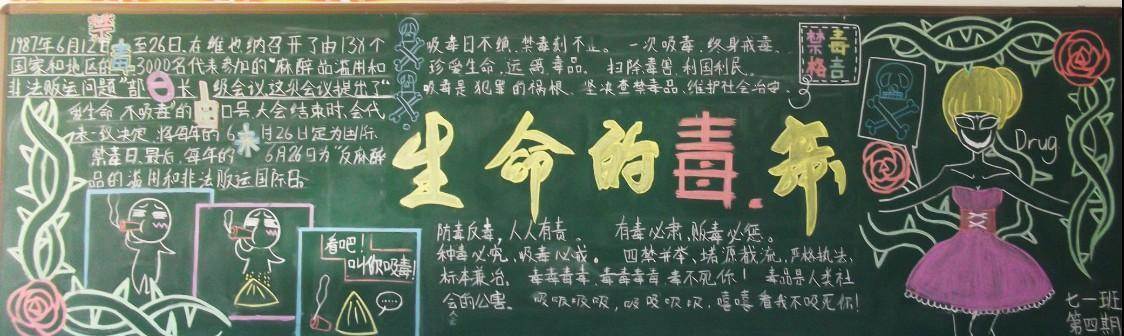 禁毒
1987年6月12日至26日,在维也纳召开了由138个
国家和地区的3000名代表参加的“麻醉品滥用和
非法贩运问题”部长级会议,这次会议提出了“
爱生命 不吸毒”的口号,大会结束时,会代
表一致决定,将每年的6月26日定为国际
禁毒日.最后,每年的6月26日为“反麻醉
品的滥用和非法贩运国际日。
吸毒日不绝,禁毒刻不止。 一次吸毒,终身戒毒.
珍爱生命,远离毒品。 扫除毒害,利国利民。
吸毒是犯罪的祸根, 坚决查禁毒品,维护社会治安.
禁毒
格言
生命的毒.
Drug.
防毒反毒,人人有责. 有毒必肃,贩毒必惩。
种毒必究,吸毒必戒。 四禁并举、堵源截流,严格执法,
标本兼治。 毒毒毒毒,毒毒毒毒,毒不死你! 毒品是人类社
会的公害. 吸吸吸吸,吸吸吸吸,嘻嘻看我不吸死你!
看吧!
叫你吸毒!
七一班
第四期